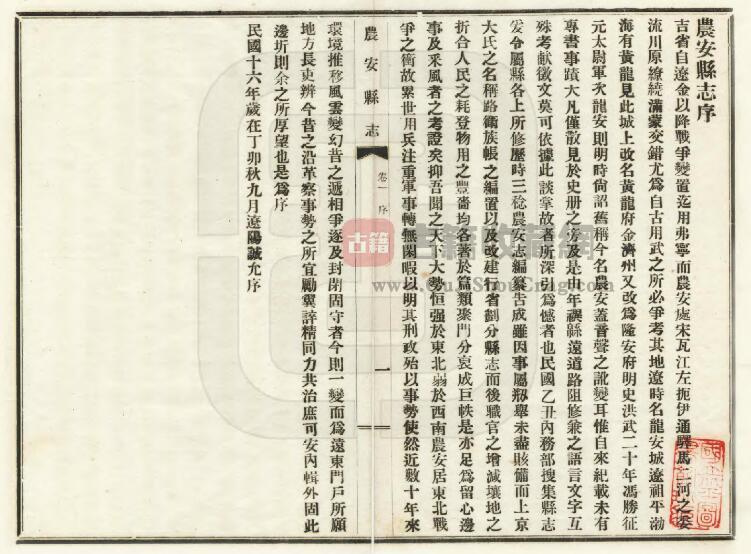 農安縣志序
吉省自遼金以降戰爭變置迄用弗寧而農安處宋瓦江左扼伊通驛馬二河之委
流川原繚繞滿蒙交錯尤爲自古用武之所必爭考其地遼時名龍安城遼祖平渤
海有黃龍見此城上改名黃龍府金濟州又改爲隆安府明史洪武二十年馮勝征
元太尉軍次龍安則明時尚詔舊稱今名農安蓋音聲之訛變耳惟自來紀載未有
專書事蹟大凡僅散見於史册之
及是
年
縣遠道路阻修兼之語言文字互
殊考獻徵文莫可依據此談掌故者所深引爲憾者也民國乙丑內務部搜集縣志
爰令屬縣各上所修歷時三稔農安志編纂告成雖因事屬剏舉未盡賅備而上京
大氏之名稱路衞族帳之編置以及改建行省劃分縣志而後職官之增減壤地之
折合人民之耗登物用之豐嗇均各著於篇類聚門分裒成巨帙是亦足爲留心邊
事及釆風者之考證矣抑吾聞之天下大勢恒强於東北弱於西南農安居東北戰
爭之衝故累世用兵注重軍事轉無閑暇以明其刑政殆以事勢使然近數十年來
農安縣志
卷一 序
一
環境推移風雲變幻昔之遞相爭逐及封閉固守者今則一變而爲遠東門戶所願
地方長吏辨今昔之沿革察事勢之所宜勵冀誶精同力共治庶可安內輯外固此
邊圻則余之所厚望也是爲序
民國十六年歲在丁卯秋九月遼陽誠允序
古籍